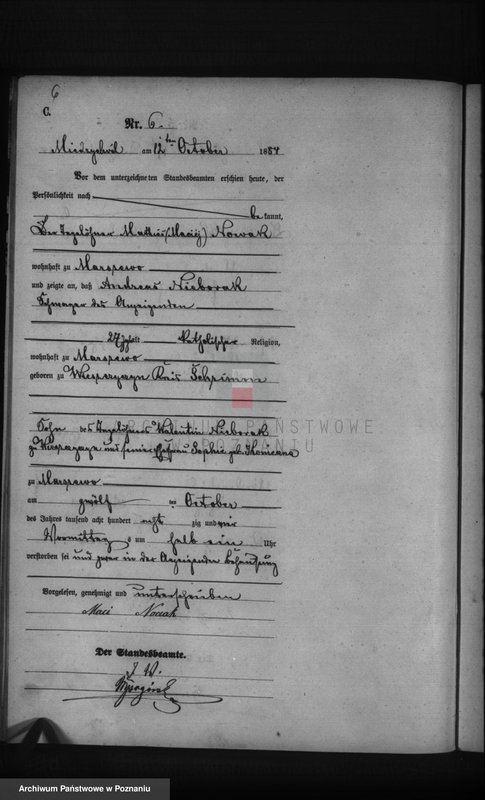 6
C.
Nr. 6.
am 12ten October 1884
Vor dem unterzeichneten Standesbeamten erschien heute, der
Persönlichkeit nach
be kannt,
Der Tagelöhner Mathias (Maciej) Nowak
wohnhaft zu
und zeigte an, daß Andreas Nieborak
Schwager des Anzeigenden
27 Jahre alt, katholischer Religion,
wohnhaft zu
geboren zu Kreis Schrimm
Sohn des Tagelöhners Valentin Nieborak
zu und seiner Ehefrau Sophie geb.
zu
am zwölf ten October
des Jahres tausend acht hundert acht zig und vier
Vormittags um halb ein Uhr
verstorben sei und zwar in des Anzeigenden Behausung
Vorgelesen, genehmigt und unterschrieben
Maci Nowak
Der Standesbeamte.
J. V.
ARCHIWUM PAŃSTWOWE
W POZNANIU
Archiwum Państwowe w Poznaniu